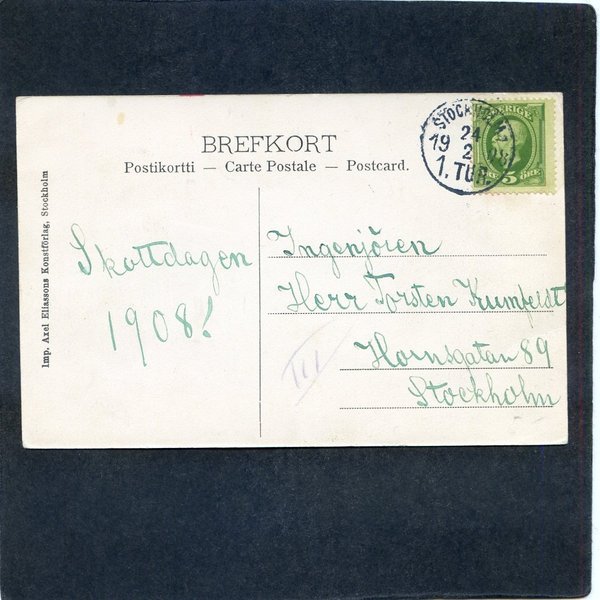 BREFKORT
Postikortti — Carte Postale — Postcard.
STOCKHOLM
19 24 2 08
1. TUR.
SVERIGE
5 ÖRE
Imp. Axel Eliassons Konstförlag, Stockholm
Skottdagen
1908!
Ingenjören
Herr Torsten Kumfeldt
Hornsgatan 89
Stockholm
III